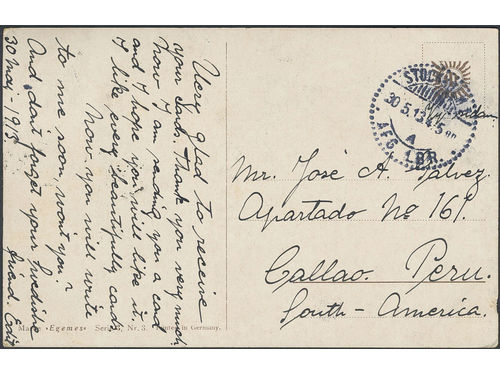 Very glad to receive
your card. Thank you very much.
Now I am sending you a card
and I hope you will like it.
I like every beautifully cards
Now you will write
to me soon, won't you?
And don't forget your Swedish
friend. Edit
30 May - 913
STOCKHOLM
30.5.13.4-5
A
AFG. 1. BR.
Mr. José A. Galvez
Apartado No 161.
Callao. Peru.
South - America.
Marke «Egemes» Serie, Nr. 3. Printed in Germany.